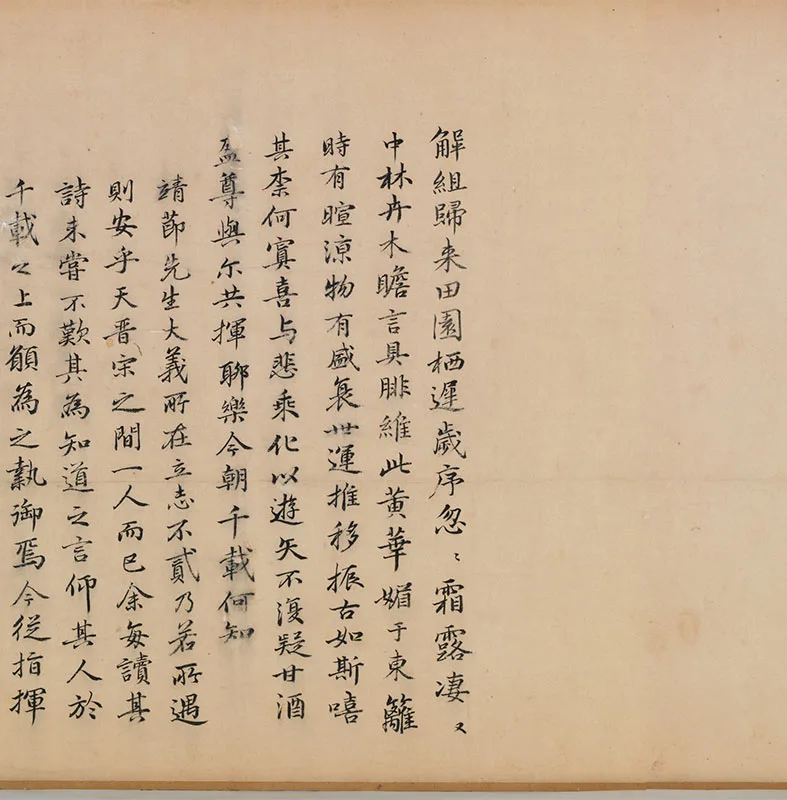 解組歸来田園栖遲歲序忽〻霜露凄〻
中林卉木瞻言具腓維此黄華媚于東籬
時有暄涼物有盛衰世運推移振古如斯嘻
其柰何寘喜与悲乘化以遊矢不復疑甘酒
盈尊與尓共揮聊樂今朝千載何知
靖節先生大義所在立志不貳乃若所遇
則安乎天晋宋之間一人而已余每讀其
詩未嘗不歎其為知道之言仰其人於
千載之上而願為之執御焉今從指揮